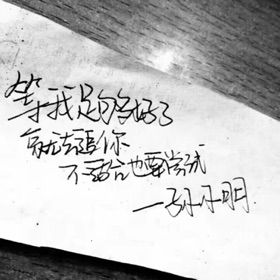 等我足够好了
就去追你
不适合也要尝试
—孙小明